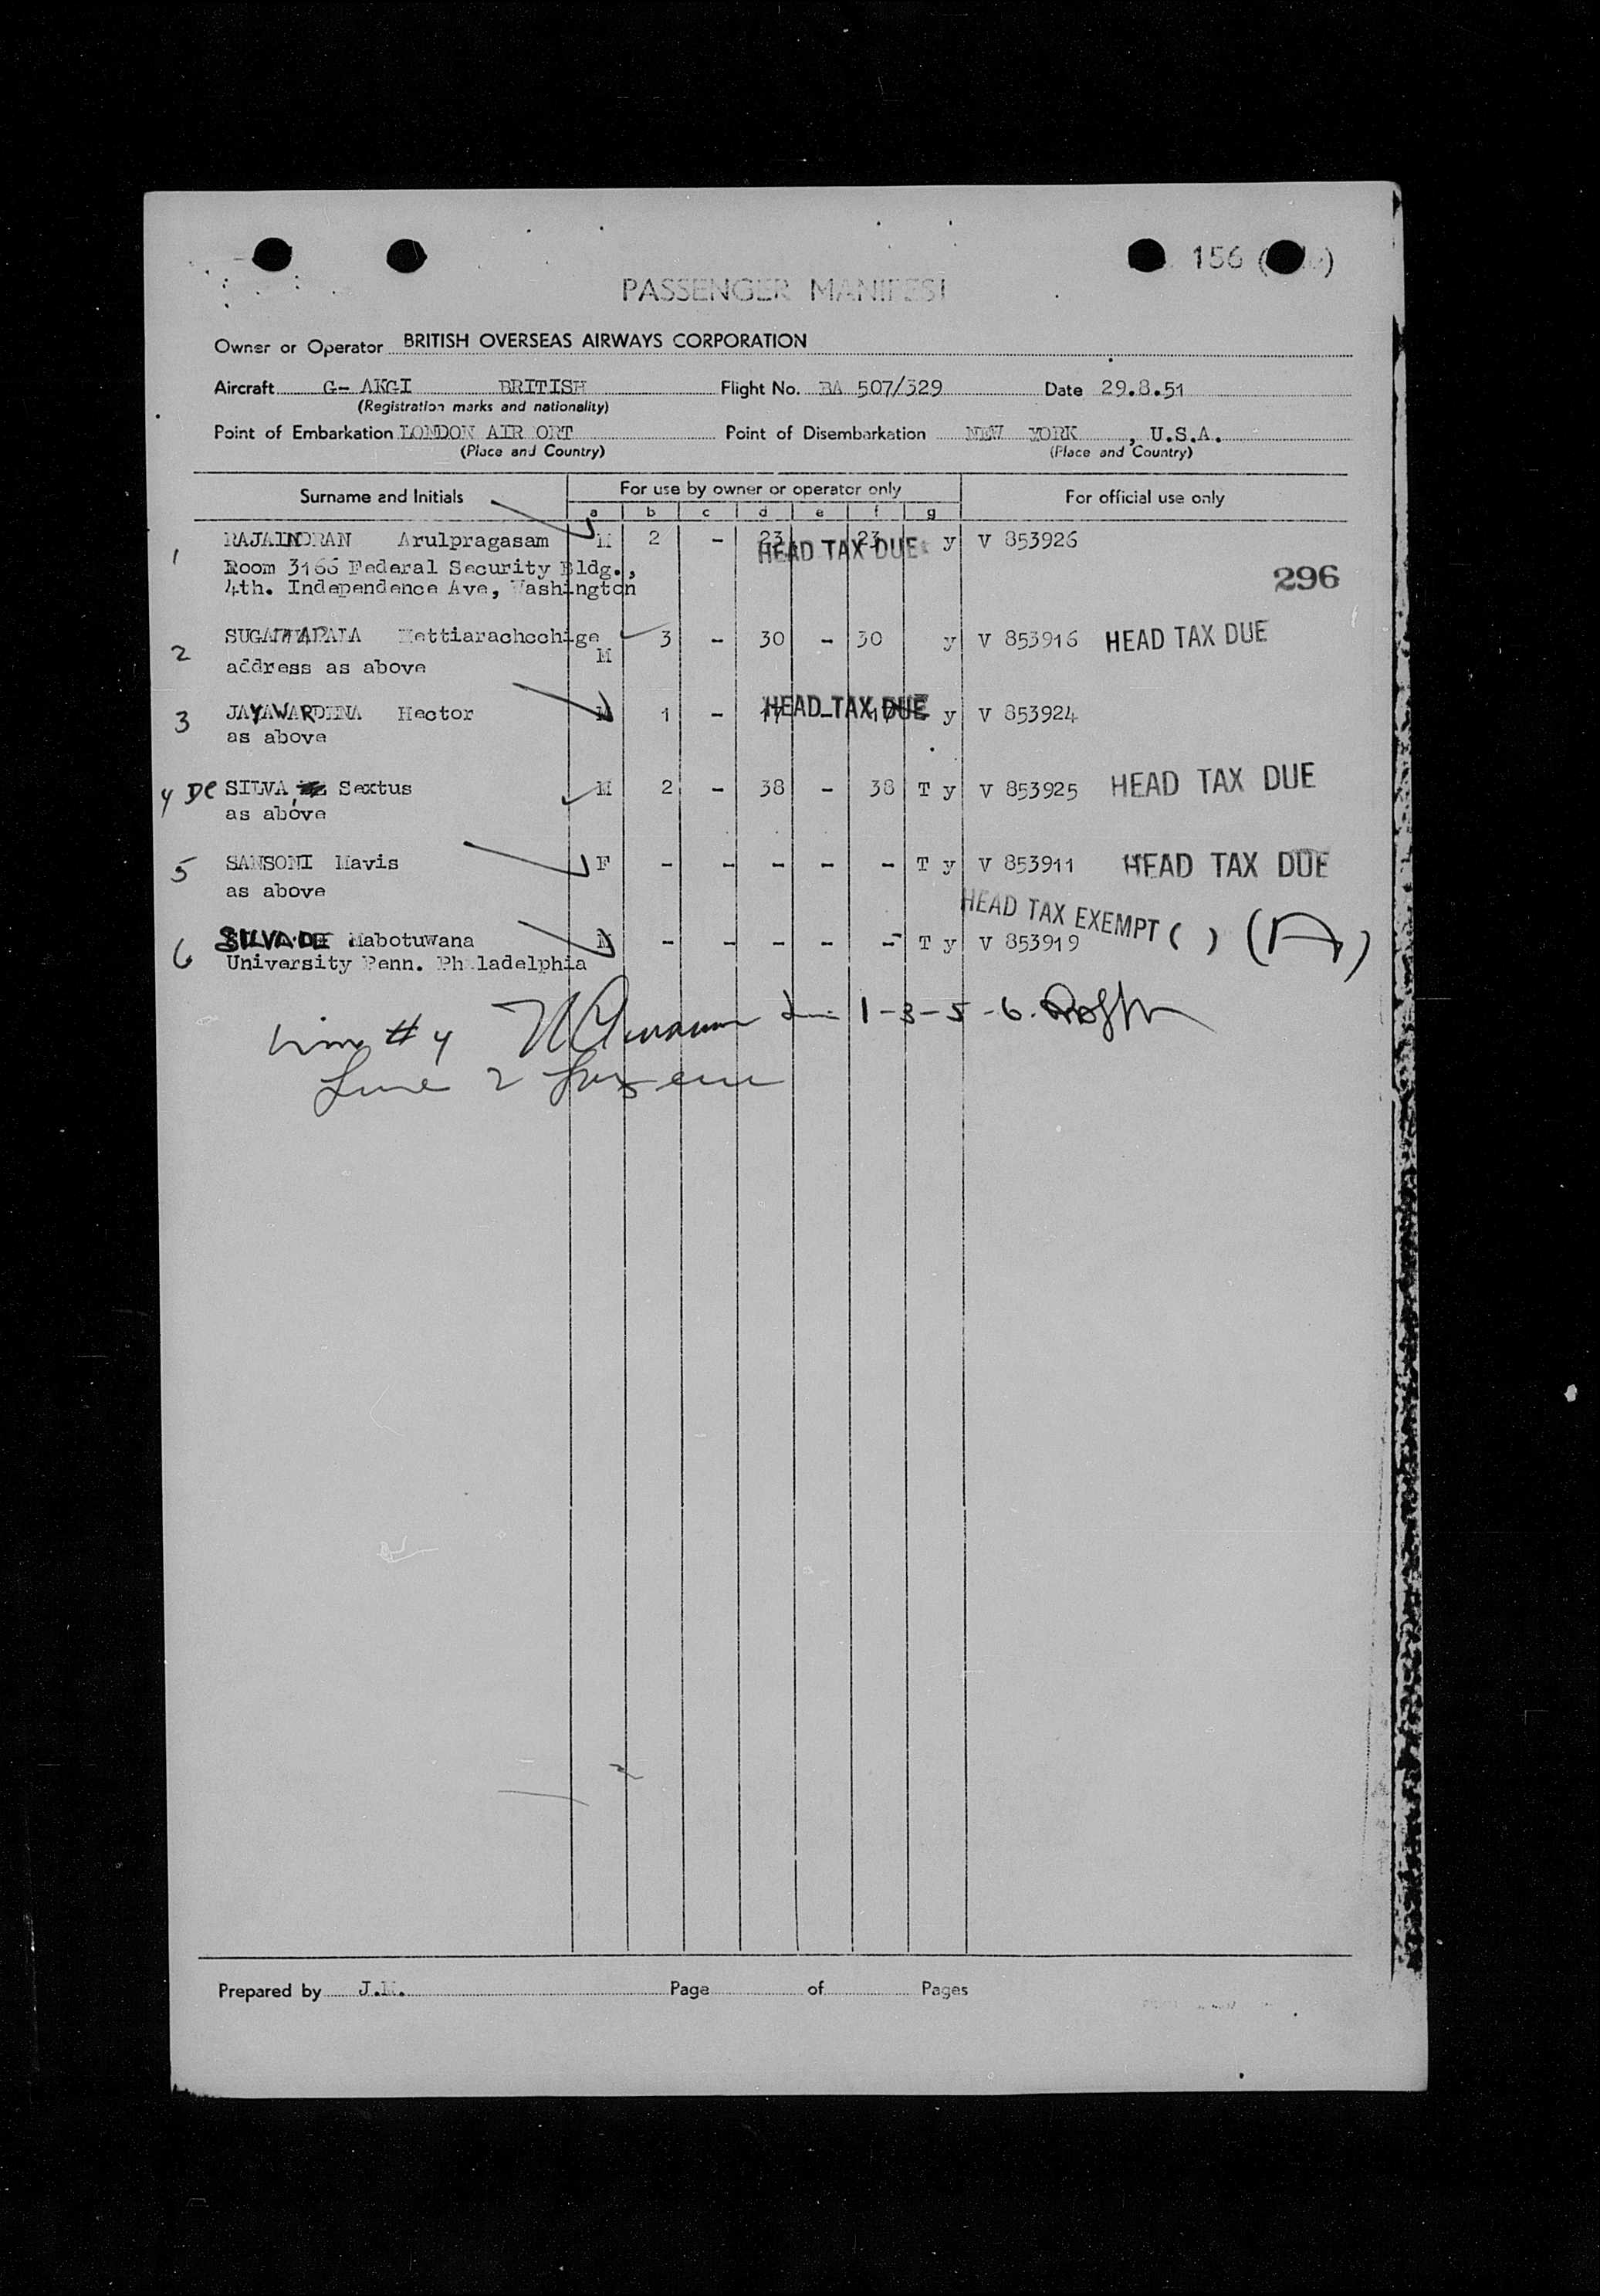 156 (
PASSENGER MANIFEST
Owner or Operator BRITISH OVERSEAS AIRWAYS CORPORATION
Aircraft G- AKGI BRITISH Flight No. BA 507/329 Date 29.8.51
(Registration marks and nationality)
Point of Embarkation LONDON AIR ORT Point of Disembarkation NEW YORK , U.S.A.
(Place and Country) (Place and Country)
Surname and Initials For use by owner or operator only For official use only
a b c d e f g
1 RAJAINDRAN Arulpragasam M 2 - 23 23 y V 853926
HEAD TAX DUE
Room 3166 Federal Security Bldg.,
296
4th. Independence Ave, Washington
2 SUGATHAPALA Hettiarachcchige M 3 - 30 - 30 y V 853916 HEAD TAX DUE
address as above
3 JAYAWARDENA Hector M 1 - 17 - 17 y V 853924
HEAD TAX DUE
as above
4 De SILVA, Sextus M 2 - 38 - 38 T y V 853925 HEAD TAX DUE
as above
5 SANSONI Mavis F - - - - - T y V 853911 HEAD TAX DUE
as above
HEAD TAX EXEMPT ( ) (A)
6 SILVA DE Mabotuwana M - - - - - T y V 853919
University Penn. Ph ladelphia
Line # 4 1-3-5-6.
Line 2
Prepared by J.M. Page of Pages